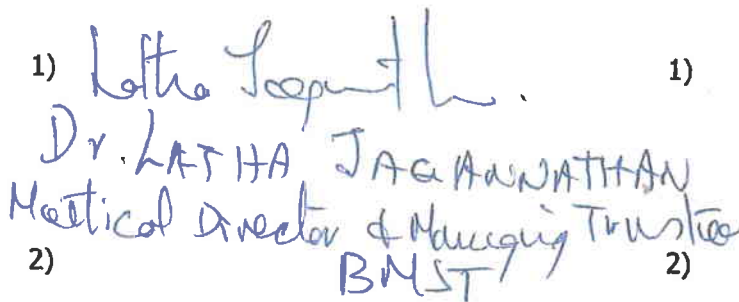 1) Latha Jagannath. 1)
Dr. LATHA JAGANNATHAN
Medical Director & Managing Trustee
2) BMST 2)